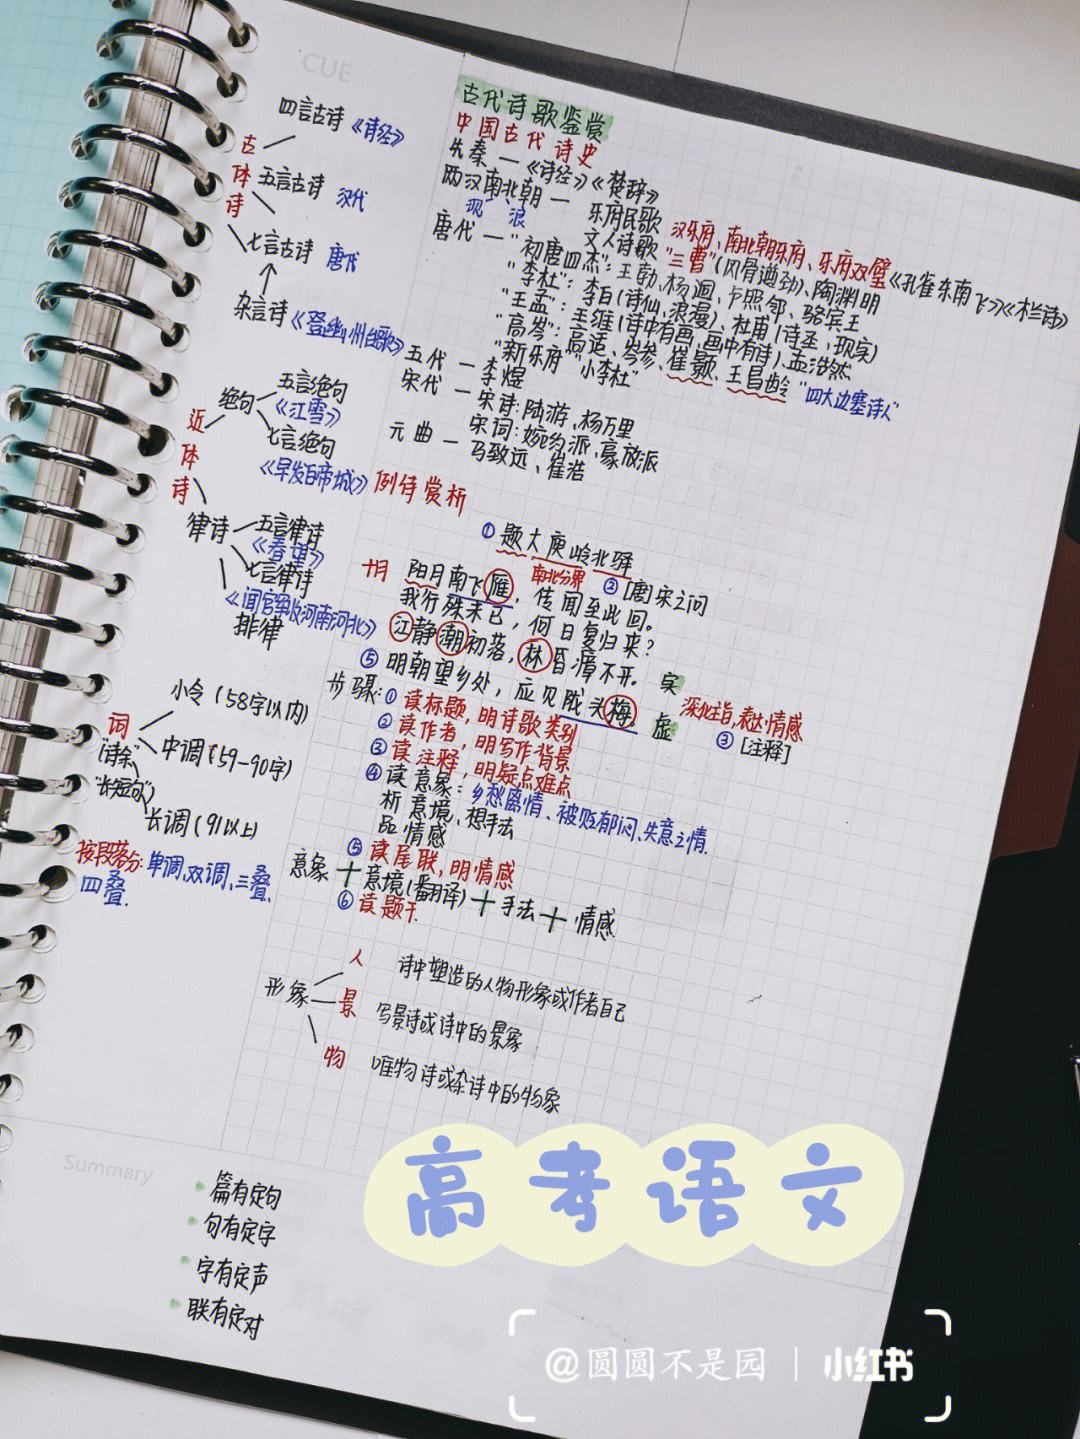 CUE
四言古诗《诗经》
古体诗
五言古诗 汉代
七言古诗 唐代
杂言诗《登幽州台歌》
近体诗
绝句
五言绝句
《江雪》
七言绝句
《早发白帝城》
律诗
五言律诗
《春望》
七言律诗
《闻官军收河南河北》
排律
词
"诗余"
"长短句"
小令(58字以内)
中调(59-90字)
长调(91以上)
按段落分:单调、双调、三叠、
四叠.
古代诗歌鉴赏
中国古代诗史
先秦—《诗经》《楚辞》
现 浪
两汉南北朝— 乐府民歌 汉乐府、南北朝乐府、乐府双璧《孔雀东南飞》《木兰诗》
文人诗歌 "三曹"(风骨遒劲)、陶渊明
唐代—"初唐四杰":王勃、杨炯、卢照邻、骆宾王
"李杜":李白(诗仙,浪漫)、杜甫(诗圣,现实)
"王孟":王维(诗中有画,画中有诗)、孟浩然
"高岑":高适、岑参、崔颢、王昌龄 "四大边塞诗人"
"新乐府" "小李杜"
五代—李煜
宋代—宋诗:陆游、杨万里
宋词:婉约派、豪放派
元曲—马致远、崔浩
例诗赏析
①题大庾岭北驿
南北分界
②[唐]宋之问
十月 阳月南飞雁,传闻至此回。
我行殊未已,何日复归来?
江静潮初落,林昏瘴不开。 实
⑤明朝望乡处,应见陇头梅。 虚
深化主旨,表达情感
③[注释]
步骤:①读标题,明诗歌类别
②读作者,明写作背景
③读注释,明疑点难点
④读意象:乡愁离情、被贬郁闷、失意之情.
析意境、想手法
品情感
⑤读尾联,明情感
意象+意境(翻译)+手法+情感
⑥读题干.
形象
人 诗中塑造的人物形象或作者自己
景 写景诗或诗中的景象
物 唯物诗或杂诗中的物象
Summary
篇有定句
句有定字
字有定声
联有定对
高考语文
@圆圆不是园 | 小红书